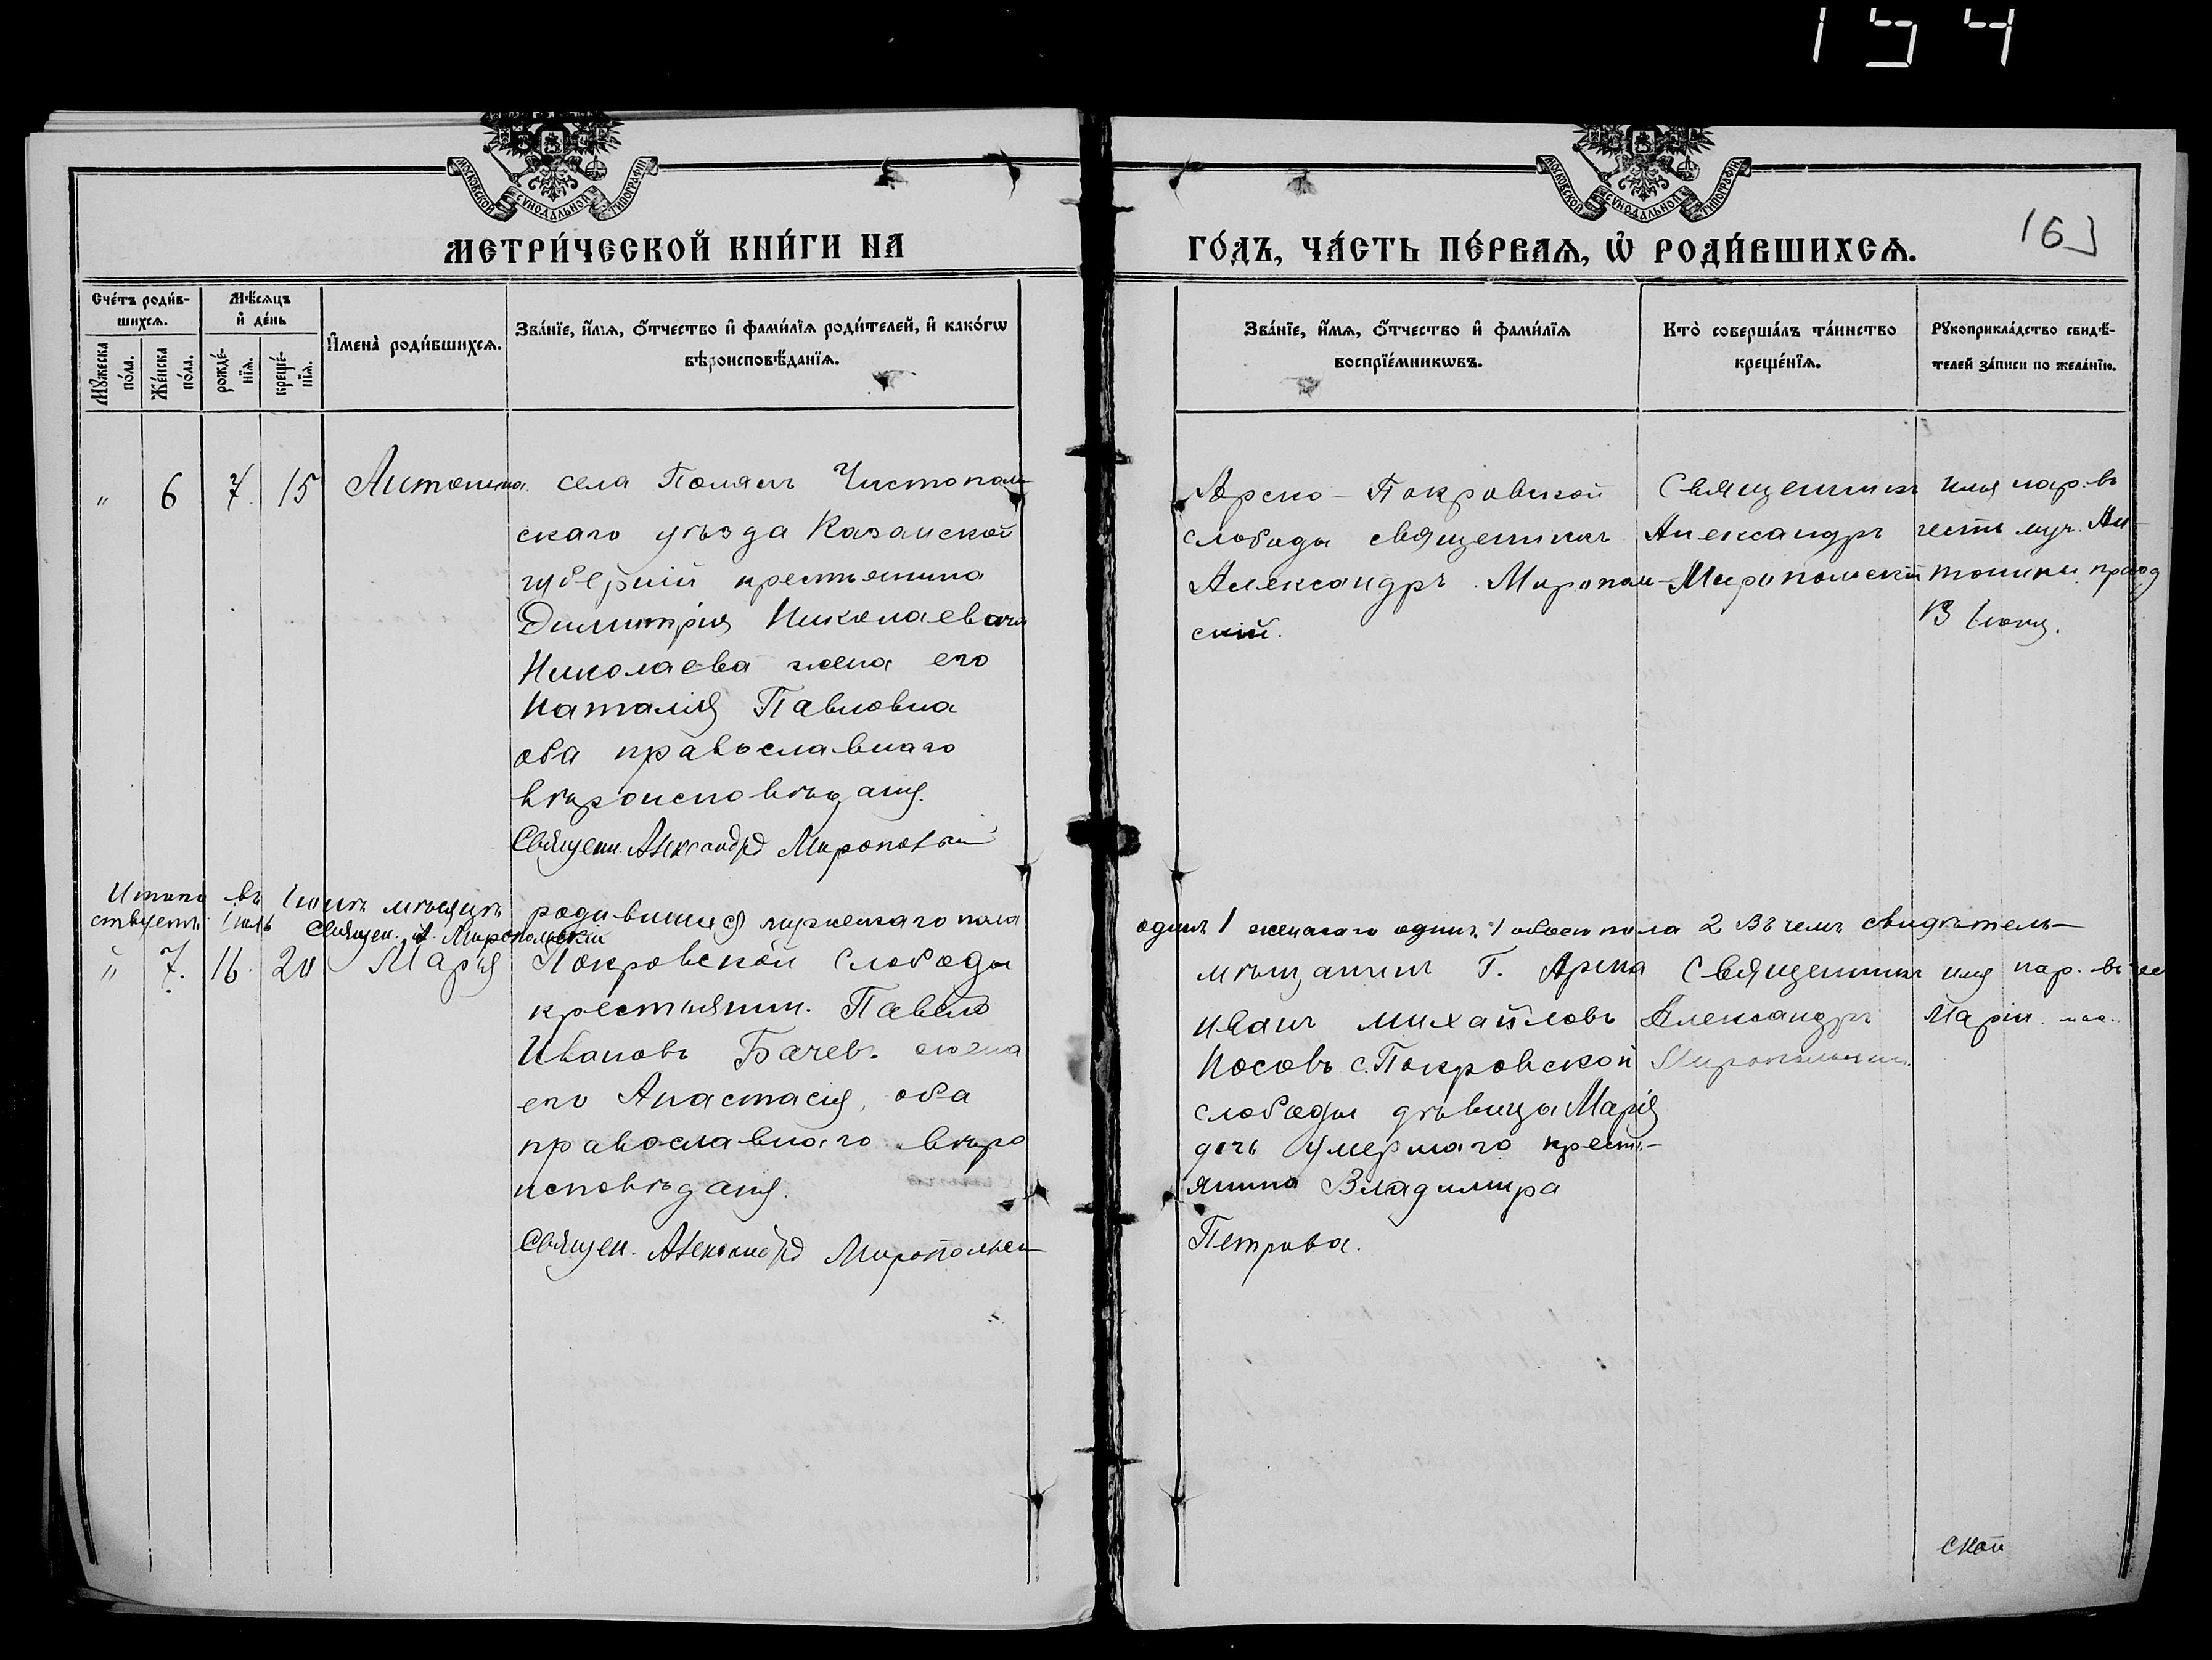 154
МОСКОВСКОЙ СУНОДАЛЬНОЙ ТИПОГРАФІИ
МОСКОВСКОЙ СУНОДАЛЬНОЙ ТИПОГРАФІИ
МЕТРИ́ЧЕСКОЙ КНИ́ГИ НА
ГО́ДЪ, ЧА́СТЬ ПЕ́РВАѦ, Ѡ҆ РОДИ́ВШИХСѦ.
Сче́тъ роди́в-
шихсѧ.
Мѣ́сѧцъ
и҆ де́нь
Мꙋ́жеска
по́ла.
Же́нска
по́ла.
рожде́-
нїѧ.
креще́-
нїѧ.
И҆мена̀ роди́вшихсѧ.
Зва́нїе, и҆́мѧ, ѻ҆́тчество и҆ фами́лїѧ роди́телей, и҆ како́гѡ
вѣроисповѣ́данїѧ.
Зва́нїе, и҆́мѧ, ѻ҆́тчество и҆ фами́лїѧ
воспрїе́мникѡвъ.
Кто̀ соверша́лъ та́инство
креще́нїѧ.
Рꙋкоприкла́дство свидѣ́-
телей за́писи по жела́нїю.
" 6 7. 15 Антонина
села Чистополь-
скаго уѣзда Казанской
губерніи крестьянина
Димитрія Николаевича
Николаева жена его
Наталія Павловна
оба православнаго
вѣроисповѣданія.
Священ. Александръ Миропольскій
Арско-Покровской
слободы священникъ
Александръ Мирополь-
скій.
Священникъ
Александръ
Миропольскій
имя нар. въ
честь муч. Ан-
тонины празд
13 Іюня.
Итого въ Іюнѣ мѣсяцѣ родившихся мужескаго пола одинъ 1 женскаго одинъ 1 обоего пола 2 Въ чемъ свидѣтель-
ствуетъ: Священ. А. Миропольскій
Іюль
" 7. 16. 20 Марія
Покровской Слободы
крестьянин. Павелъ
Ивановъ Бачев. жена
его Анастасія, оба
православнаго вѣро
исповѣданія.
Священ. Александръ Миропольскі
мѣщанинъ Г. Арска
Иванъ Михайловъ
Носовъ с. Покровской
слободы дѣвица Марія
дочь умершаго крест-
янина Владимира
Петрова.
Священникъ
Александръ
Миропольскій.
имя нар. въ чес
Маріи